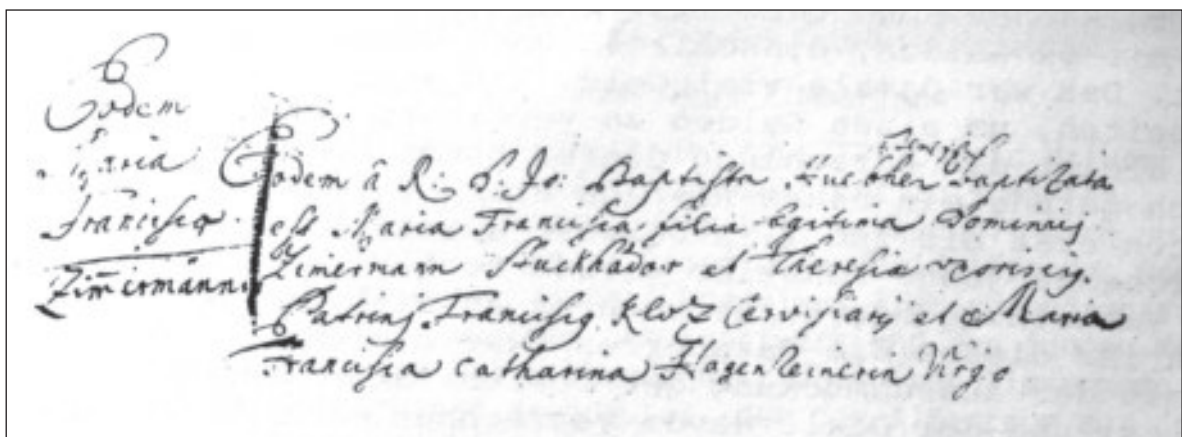 Eodem
Maria
Francisca
Zimermannin
Eodem â R: P: Jo: Baptista baptizata
est Maria Francisca filia legitima Dominicj
Zimermann Stuckhador et Theresiæ uxoris ejg.
Patrinj Franciscg Kloz Cervisiarij et Maria
Francisca Catharina Hagenleinerin Virgo